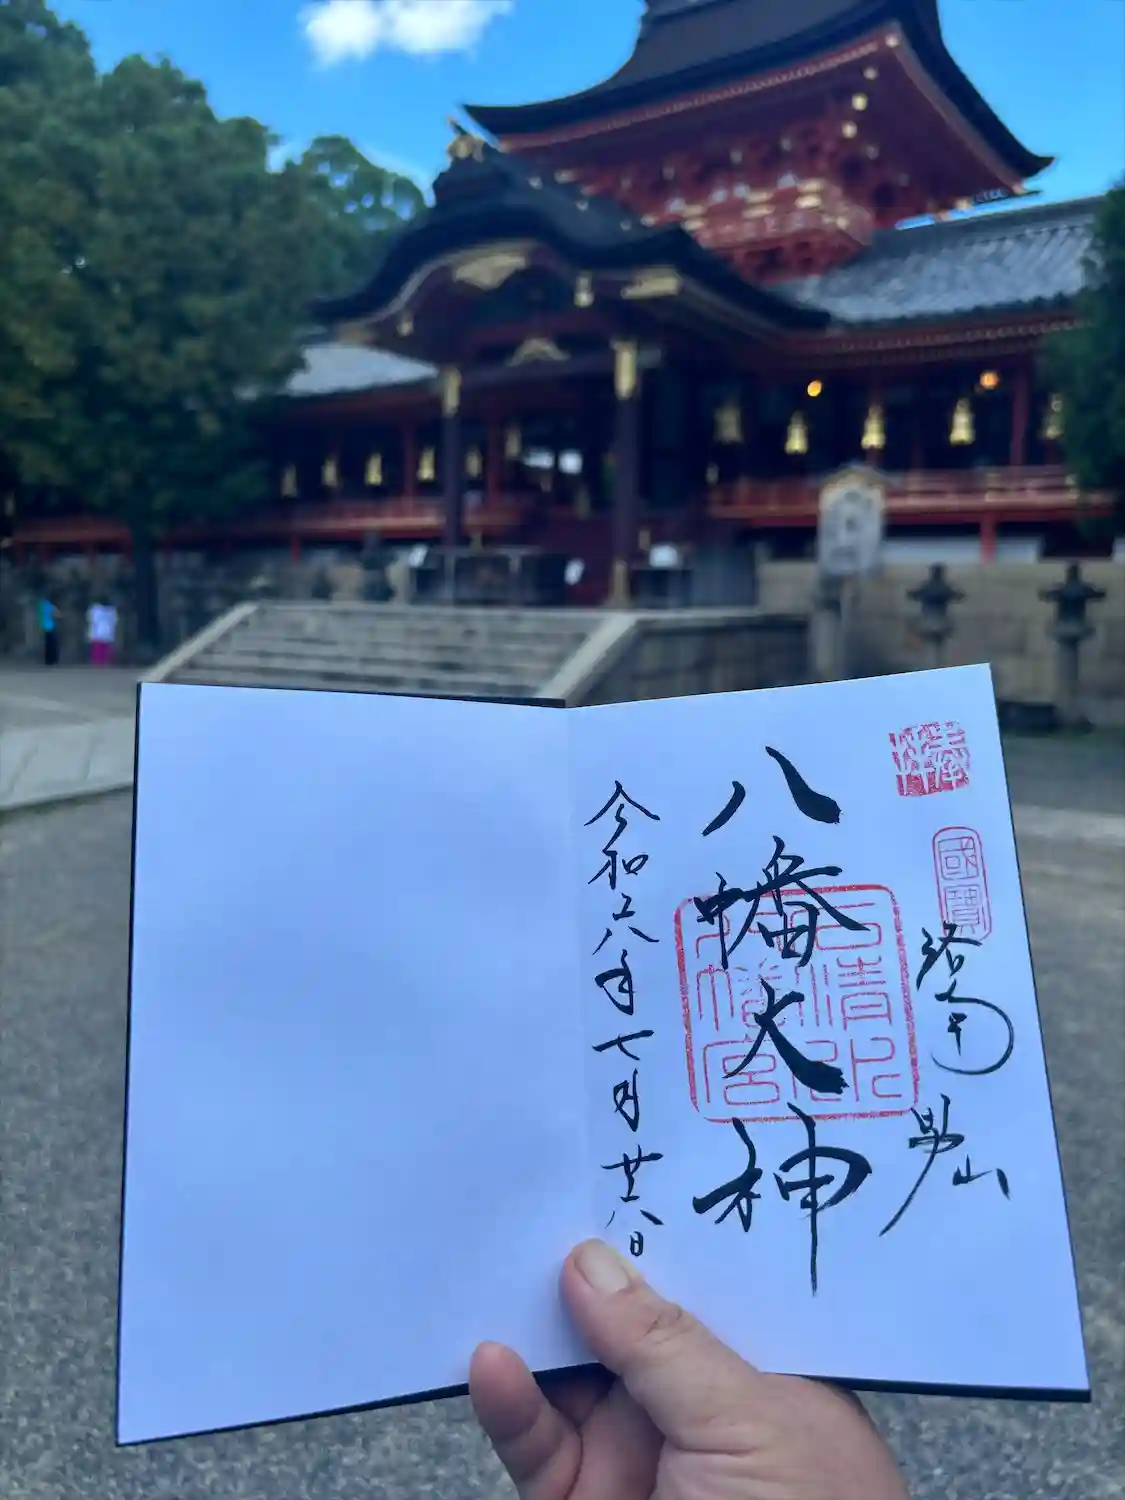 奉拝
國寶
洛南 男山
八幡大神
石清水八幡宮
令和六年七月廿八日